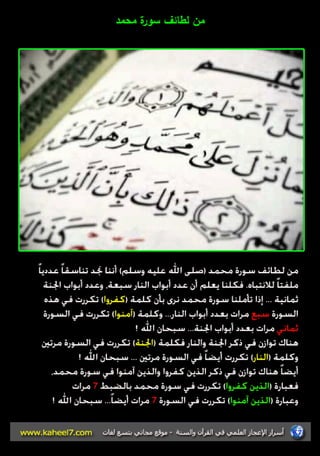 من لطائف سورة محمد
أَعْمَٰلَهُمْ ١ وَالَّذِينَ
نُزِّلَ عَلَىٰ مُحَمَّدٍ وَهُوَ الْحَقُّ
٢ ذَٰلِكَ بِأَنَّ الَّذِينَ
من لطائف سورة محمد (صلى الله عليه وسلم) أننا نجد تناسقاً عددياً
ملفتاً للانتباه، فكلنا يعلم أن عدد أبواب النار سبعة، وعدد أبواب الجنة
ثمانية ... إذا تأملنا سورة محمد نرى بأن كلمة (كفروا) تكررت في هذه
السورة سبع مرات بعدد أبواب النار... وكلمة (آمنوا) تكررت في السورة
ثماني مرات بعدد أبواب الجنة... سبحان الله !
هناك توازن في ذكر الجنة والنار فكلمة (الجنة) تكررت في السورة مرتين
وكلمة (النار) تكررت أيضاً في السورة مرتين ... سبحان الله !
أيضاً هناك توازن في ذكر الذين كفروا والذين آمنوا في سورة محمد،
فعبارة (الذين كفروا) تكررت في سورة محمد بالضبط 7 مرات
وعبارة (الذين آمنوا) تكررت في السورة 7 مرات أيضاً... سبحان الله !
أسرار الإعجاز العلمي في القرآن والسنة - موقع مجاني بتسع لغات www.kaheel7.com